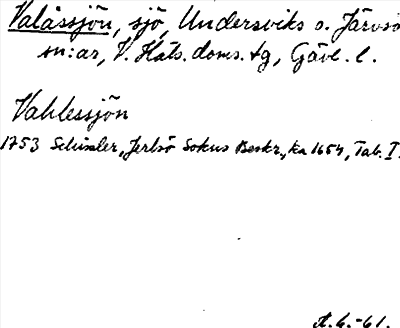 Valåssjön, sjö, Undersviks o. Järvsö
sn:ar, V. Häls. doms. tg, Gävl. l.
Vahlessjön
1753 Schissler, Jerfsö Sokns Beskr., ka 1654, Tab. I.
A.G.-61.